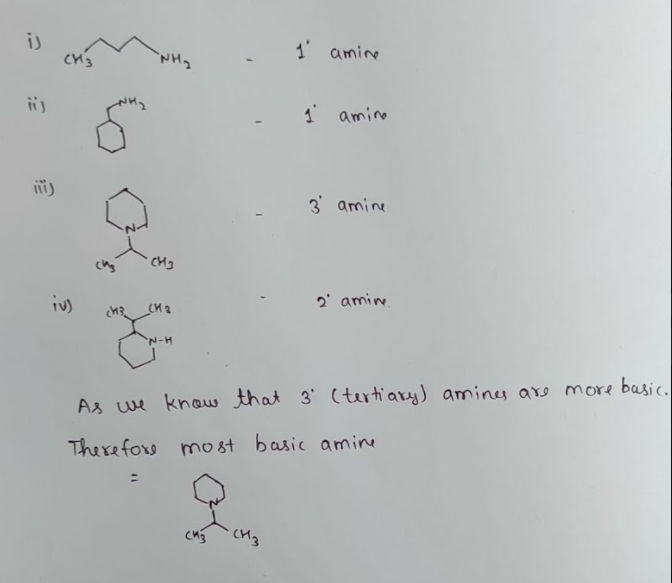 i) CH3 NH2 - 1° amine
ii) NH2 - 1° amine
iii) N CH3 CH3 - 3° amine
iv) CH3 CH3 N-H - 2° amine.
As we know that 3° (tertiary) amines are more basic.
Therefore most basic amine
= N
CH3 CH3